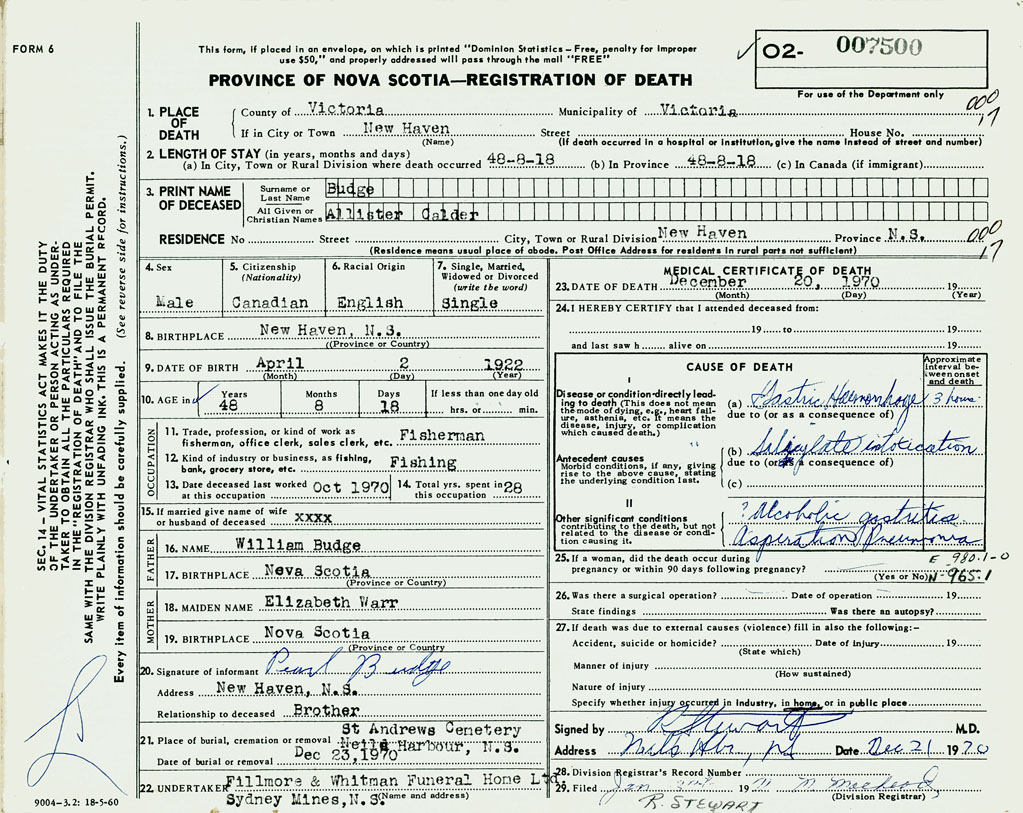 FORM 6
This form, if placed in an envelope, on which is printed "Dominion Statistics – Free, penalty for improper
use $50," and properly addressed will pass through the mail "FREE"
✓ O2- 007500
For use of the Department only
PROVINCE OF NOVA SCOTIA—REGISTRATION OF DEATH
SEC. 14 - VITAL STATISTICS ACT MAKES IT THE DUTY
OF THE UNDERTAKER OR PERSON ACTING AS UNDER-
TAKER TO OBTAIN ALL THE PARTICULARS REQUIRED
IN THE "REGISTRATION OF DEATH" AND TO FILE THE
SAME WITH THE DIVISION REGISTRAR WHO SHALL ISSUE THE BURIAL PERMIT.
WRITE PLAINLY WITH UNFADING INK. THIS IS A PERMANENT RECORD.
Every item of information should be carefully supplied. (See reverse side for instructions.)
1. PLACE OF DEATH
County of Victoria Municipality of Victoria 000
If in City or Town New Haven Street House No. 17
(Name) (If death occurred in a hospital or institution, give the name instead of street and number)
2. LENGTH OF STAY (in years, months and days)
(a) In City, Town or Rural Division where death occurred 48-8-18 (b) In Province 48-8-18 (c) In Canada (if immigrant)
3. PRINT NAME OF DECEASED
Surname or Last Name Budge
All Given or Christian Names Allister Calder
RESIDENCE No Street City, Town or Rural Division New Haven Province N.S. 000
(Residence means usual place of abode. Post Office Address for residents in rural parts not sufficient) 17
4. Sex Male
5. Citizenship (Nationality) Canadian
6. Racial Origin English
7. Single, Married, Widowed or Divorced (write the word) Single
8. BIRTHPLACE New Haven, N.S.
((Province or Country)
9. DATE OF BIRTH April 2 1922
(Month) (Day) (Year)
10. AGE in ✓ Years Months Days If less than one day old
48 8 18 hrs. or min.
OCCUPATION
11. Trade, profession, or kind of work as
fisherman, office clerk, sales clerk, etc. Fisherman
12. Kind of industry or business, as fishing,
bank, grocery store, etc. Fishing
13. Date deceased last worked at this occupation Oct 1970
14. Total yrs. spent in this occupation 28
15. If married give name of wife
or husband of deceased xxxx
FATHER
16. NAME William Budge
17. BIRTHPLACE Nova Scotia
(Province or Country)
MOTHER
18. MAIDEN NAME Elizabeth Warr
19. BIRTHPLACE Nova Scotia
(Province or Country
20. Signature of informant Pearl Budge
Address New Haven, N.S.
Relationship to deceased Brother
St Andrews Cemetery
21. Place of burial, cremation or removal Neils Harbour, N.S.
Date of burial or removal Dec 23, 1970
22. UNDERTAKER Fillmore & Whitman Funeral Home Ltd.
Sydney Mines, N.S. (Name and address)
9004-3.2: 18-5-60
MEDICAL CERTIFICATE OF DEATH
23. DATE OF DEATH December 20, 1970 19
(Month) (Day) (Year)
24. I HEREBY CERTIFY that I attended deceased from:
19 to 19
and last saw h alive on 19
CAUSE OF DEATH
Approximate interval between onset and death
I
Disease or condition directly leading to death (This does not mean the mode of dying, e.g., heart failure, asthenia, etc. It means the disease, injury, or complication which caused death.)
(a) Gastric Haemorrhage 3 hours
due to (or as a consequence of)
Antecedent causes
Morbid conditions, if any, giving rise to the above cause, stating the underlying condition last.
(b) Salicylate intoxication
due to (or as a consequence of)
(c)
II
Other significant conditions
contributing to the death, but not related to the disease or condition causing it.
? Alcoholic gastritis
Aspiration Pneumonia
25. If a woman, did the death occur during
pregnancy or within 90 days following pregnancy?
(Yes or No)
E 980.1-0
N-965.1
26. Was there a surgical operation? Date of operation 19
State findings Was there an autopsy?
27. If death was due to external causes (violence) fill in also the following:-
Accident, suicide or homicide? Date of injury 19
(State which)
Manner of injury
(How sustained)
Nature of injury
Specify whether injury occurred in industry, in home, or in public place
Signed by R Stewart M.D.
Address Neils Hbr, NS Date Dec 21 1970
28. Division Registrar's Record Number
29. Filed Jan 19
(Division Registrar)
R. STEWART